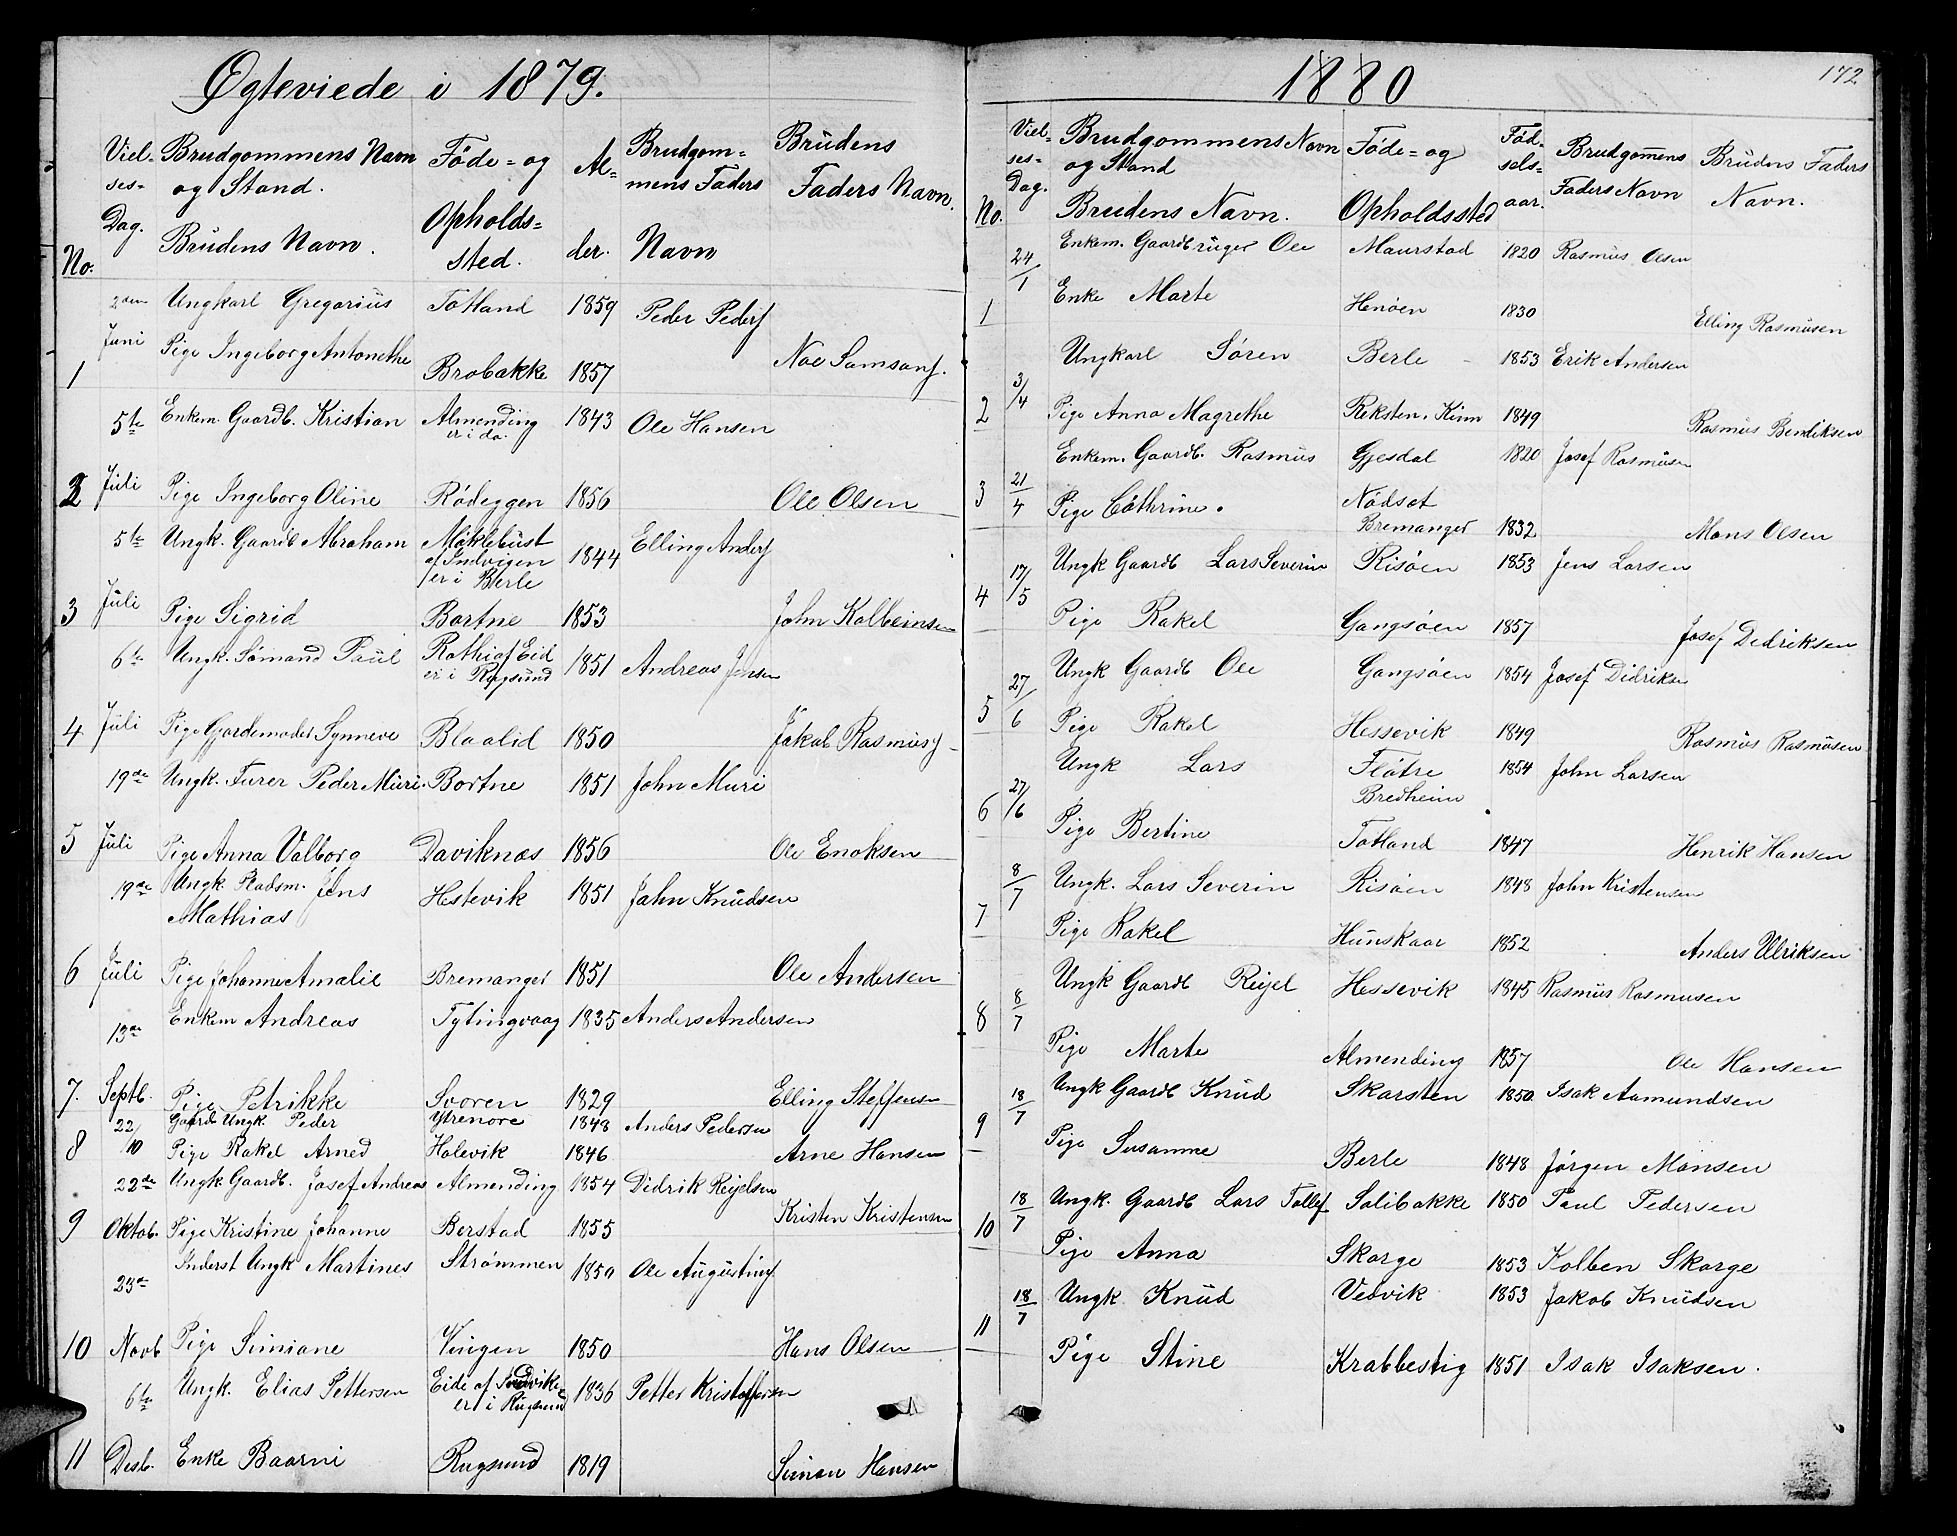 Ægteviede i 1879.
No.
Viel-
ses-
Dag.
Brudgommens Navn
og Stand.
Brudens Navn.
Føde- og
Opholds-
sted.
Al-
der.
Brudgom-
mens Faders
Navn
Brudens
Faders Navn.
2den Ungkarl Gregorius Totland 1859 Peder Peders
1 Juni Pige Ingeborg Antonethe Brobakke 1857 Noe Samsons.
5te Enkem. Gaardb. Kristian Almending 1843 Ole Hansen
er i do.
2 Juli Pige Ingeborg Oline Rødeggen 1856 Ole Olsen
5te Ungk. Gaardb Abraham Møklebust 1844 Elling Anders
af Indvigen
er i Berle
3 Juli Pige Sigrid Bortne 1853 John Kolbeinsen
6te Ungk. Sømand Paul Rothi af Eid 1851 Andreas Jensen
er i Rugsund
4 Juli Pige Gjordemoder Synneve Blaalid 1850 Jakob Rasmuss
19de Ungk. Furer Peder Muri. Bortne 1851 John Muri
5 Juli Pige Anna Valborg Daviknæs 1856 Ole Enoksen
19de Ungk. Pladsm. Jens Hestevik 1851 John Knudsen
Mathias
6 Juli Pige Johanne Amalie Bremanger 1851 Ole Andersen
13de Enkem Andreas Tytingvaag 1835 Anders Andersen
7. Septb. Pige Petrikke Svoren 1829 Elling Steffensen
22/10 Gaardb Ungk. Peder Ytrenore 1848 Anders Pedersen
8 Pige Rakel Arned Holevik 1846 Arne Hansen
22de Ungk Gaardb. Josef Andreas Almending 1854 Didrik Reijelsen
9 Oktob. Pige Kristine Johanne Berstad 1855 Kristen Kristensen
23de Inderst Ungk Martines Strømmen 1850 Ole Augustins
10 Novb Pige Simiane Vingen 1850 Hans Olsen
6te Ungk. Elias Pettersen Eide af Indvike 1836 Petter Kristoffersen
er i Rugsund
11 Desb. Enke Baarni Rugsund 1819 Simon Hansen
1880
172
No.
Viel-
ses-
Dag.
Brudgommens Navn
og Stand
Brudens Navn.
Føde- og
Opholdssted
Fød-
sels-
aar.
Brudgomens
Faders Navn
Brudens Faders
Navn.
24/1 Enkem. Gaardbruger Ole Maurstad 1820 Rasmus Olsen
1 Enke Marte Henøen 1830 Elling Rasmusen
3/4 Ungkarl Søren Berle 1853 Erik Andersen
2 Pige Anna Magrethe Reksten. Kinn 1849 Rasmus Bendiksen
21/4 Enkem. Gaardb. Rasmus Gjesdal 1820 Josef Rasmusen
3 Pige Cathrine. Nødset
Bremanger 1832 Mons Olsen
17/5 Ungk Gaardb Lars Severin Risøen 1853 Jens Larsen
4 Pige Rakel Gangsøen 1857 Josef Dedriksen
27/6 Ungk Gaardb Ole Gangsøen 1854 Josef Didriksen
5 Pige Rakel Hessevik 1849 Rasmus Rasmusen
27/6 Ungk Lars Fløtre 1854 John Larsen
Bredheim
6 Pige Bertine Totland 1847 Henrik Hansen
8/7 Ungk. Lars Severin Risøen 1848 John Kristensen
7 Pige Rakel Hunskaar 1852 Anders Ulriksen
8/7 Ungk Gaardb Reijel Hessevik 1845 Rasmus Rasmusen
8 Pige Marte Almending 1857 Ole Hansen
18/7 Ungk Gaardb Knud Skarsten 1850 Isak Aamundsen
9 Pige Susanne Berle 1848 Jørgen Monsen
18/7 Ungk. Gaardb Lars Tollef Solibakke 1850 Paul Pedersen
10 Pige Anna Skorge 1853 Kolben Skorge
18/7 Ungk Knud Vedvik 1853 Jakob Knudsen
11 Pige Stine Krabbestig 1851 Isak Isaksen.